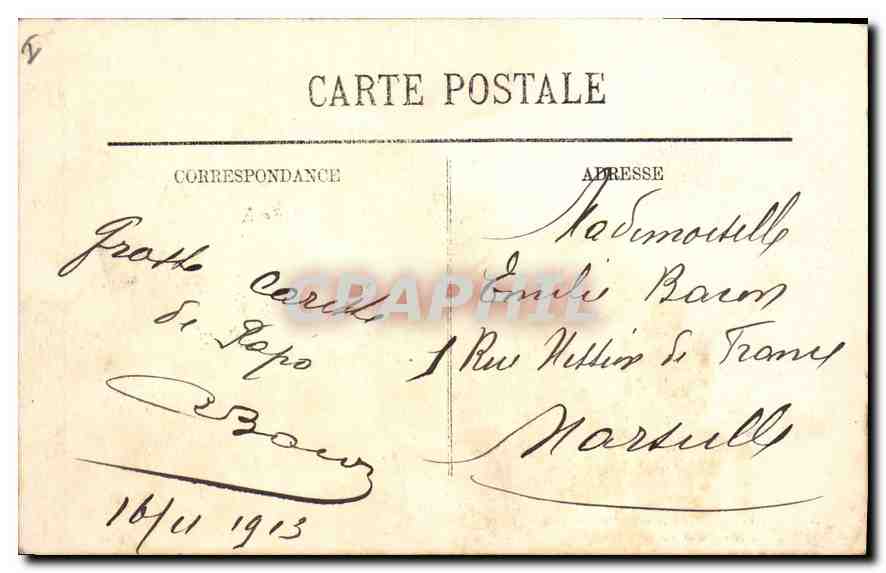 CARTE POSTALE
CORRESPONDANCE
Grosse Caresse
de Papo
Bacon
16/11 1913
ADRESSE
Mademoiselle
Emilie Bacon
1 Rue Mission de France
Marseille
CPAPHIL